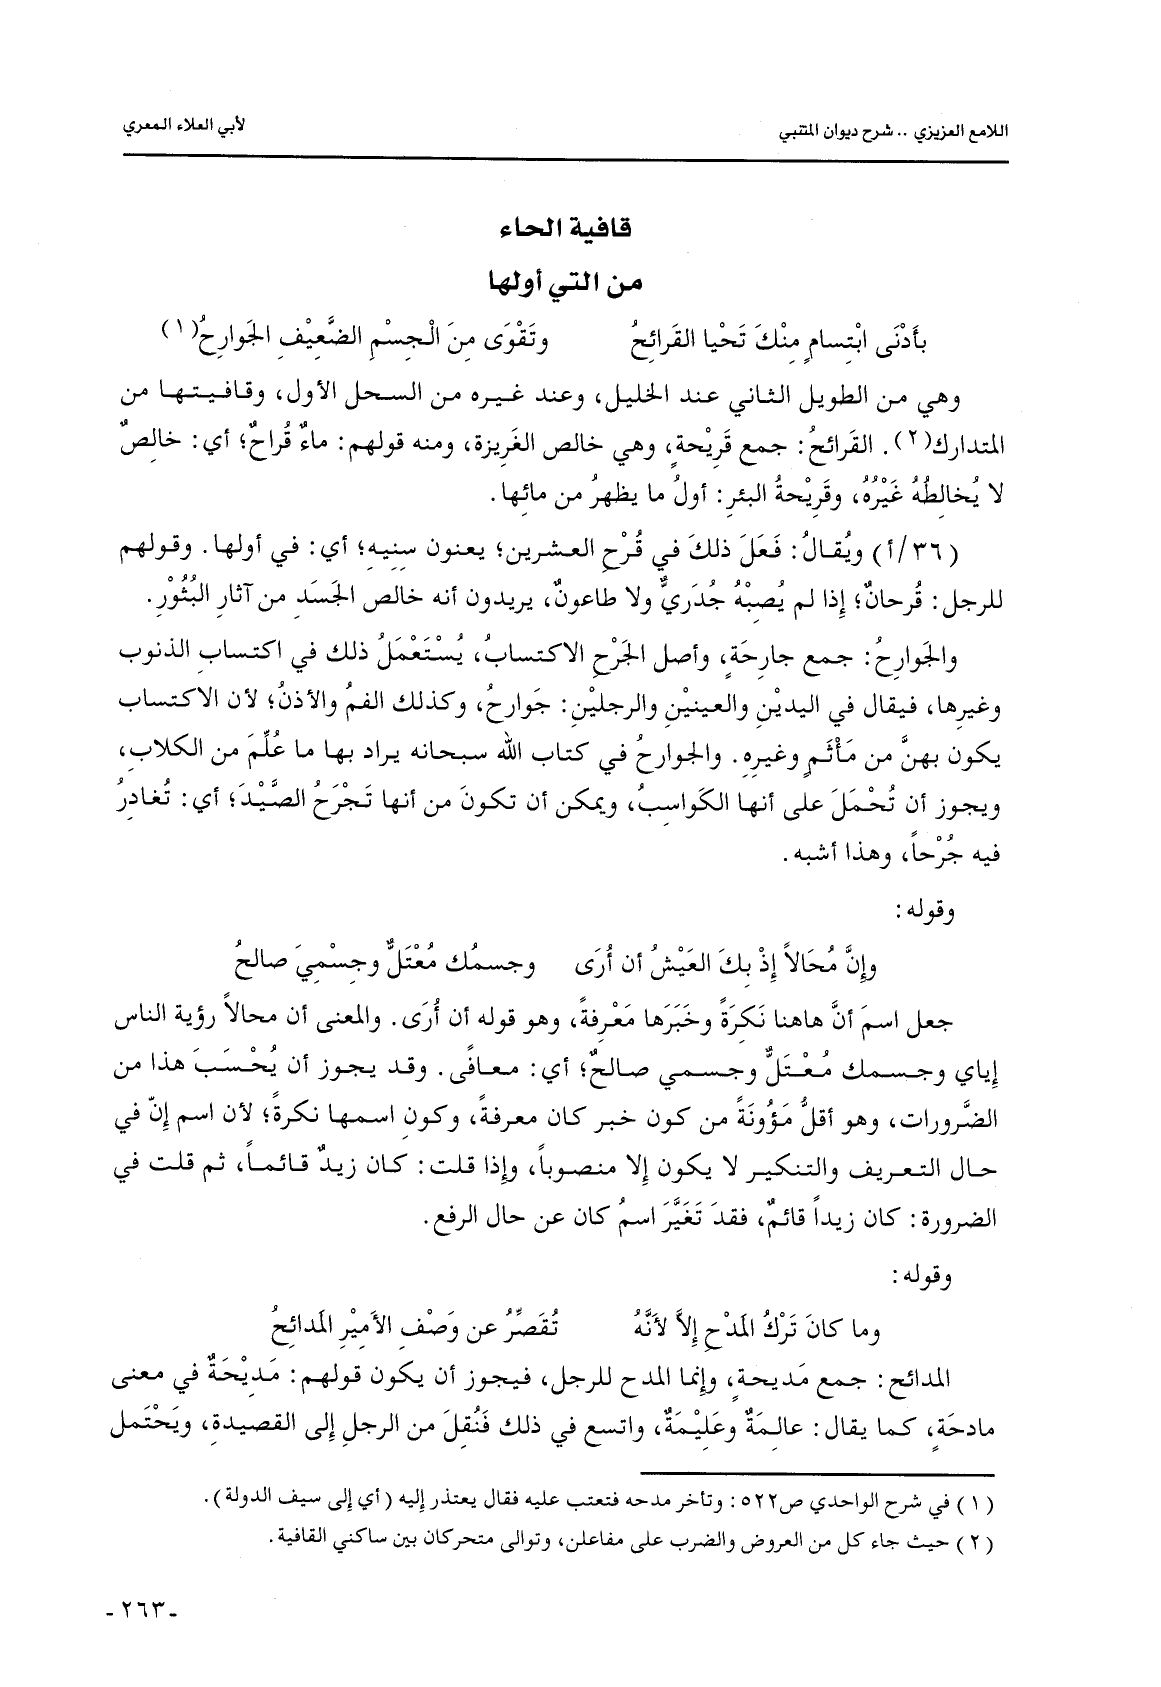 اللامع العزيزي .. شرح ديوان المتنبي
لأبي العلاء المعري
قافية الحاء
من التي أولها
بأَدْنَى ابْتِسامٍ مِنْكَ تَحْيا القَرائِحُ وتَقْوَى مِنَ الْجِسْمِ الضَّعِيْفِ الجَوارِحُ(١)
وهي من الطويل الثاني عند الخليل، وعند غيره من السحل الأول، وقافيتها من
المتدارك(٢). القَرائحُ: جمع قَرِيْحةٍ، وهي خالص الغَرِيزة، ومنه قولهم: ماءٌ قُراحٌ؛ أي: خالِصٌ
لا يُخالِطُهُ غَيْرُهُ، وقَرِيْحةُ البئرِ: أولُ ما يظهرُ من مائِها.
(٣٦/أ) ويُقالُ: فَعَلَ ذلكَ في قُرْحِ العشرين؛ يعنون سِنِيه؛ أي: في أولها. وقولهم
للرجل: قُرحانٌ؛ إذا لم يُصبْهُ جُدَرِيٌّ ولا طاعونٌ، يريدون أنه خالص الجَسَدِ من آثارِ البُثُوْرِ.
والجَوارِحُ: جمع جارِحَةٍ، وأصل الجَرْحِ الاكتسابُ، يُسْتَعْمَلُ ذلك في اكتسابِ الذنوب
وغيرِها، فيقال في اليديْنِ والعينيْنِ والرجليْنِ: جَوارحُ، وكذلك الفمُ والأذنُ؛ لأن الاكتساب
يكون بهنَّ من مَأْثَمٍ وغيرِهِ. والجوارحُ في كتاب الله سبحانه يراد بها ما عُلِّمَ من الكلاب،
ويجوز أن تُحْمَلَ على أنها الكَواسِبُ، ويمكن أن تكونَ من أنها تَجْرَحُ الصَّيْدَ؛ أي: تُغادِرُ
فيه جُرْحاً، وهذا أشبه.
وقوله:
وإنَّ مُحَالاً إذْ بِكَ العَيْشُ أن أُرَى وجسمُك مُعْتَلٌّ وجِسْمِيَ صالحُ
جعل اسمَ أنَّ هاهنا نَكرَةً وخَبَرَها مَعْرِفةً، وهو قوله أن أُرَى. والمعنى أن محالاً رؤية الناس
إياي وجسمك مُعْتَلٌّ وجسمي صالحٌ؛ أي: معافًى. وقد يجوز أن يُحْسَبَ هذا من
الضَّرورات، وهو أقلُّ مَؤُونَةً من كون خبر كان معرفةً، وكونِ اسمها نكرةً؛ لأن اسم إنّ في
حال التعريف والتنكير لا يكون إلا منصوباً، وإذا قلت: كان زيدٌ قائماً، ثم قلت في
الضرورة: كان زيداً قائمٌ، فقدَ تَغَيَّرَ اسمُ كان عن حال الرفع.
وقوله:
وما كانَ تَرْكُ المَدْحِ إلاَّ لأَنَّهُ تُقَصِّرُ عن وَصْفِ الأَمِيْرِ المَدائحُ
المدائح: جمع مَديحةٍ، وإنما المدح للرجل، فيجوز أن يكون قولهم: مَدِيْحَةٌ في معنى
مادحَةٍ، كما يقال: عالِمَةٌ وعَلِيْمَةٌ، واتسع في ذلك فَنُقِلَ من الرجلِ إلى القصيدةِ، ويَحْتَمل
(١) في شرح الواحدي ص٥٢٢: وتأخر مدحه فتعتب عليه فقال يعتذر إليه (أي إلى سيف الدولة).
(٢) حيث جاء كل من العروض والضرب على مفاعلن، وتوالى متحركان بين ساكني القافية.
-٢٦٣-